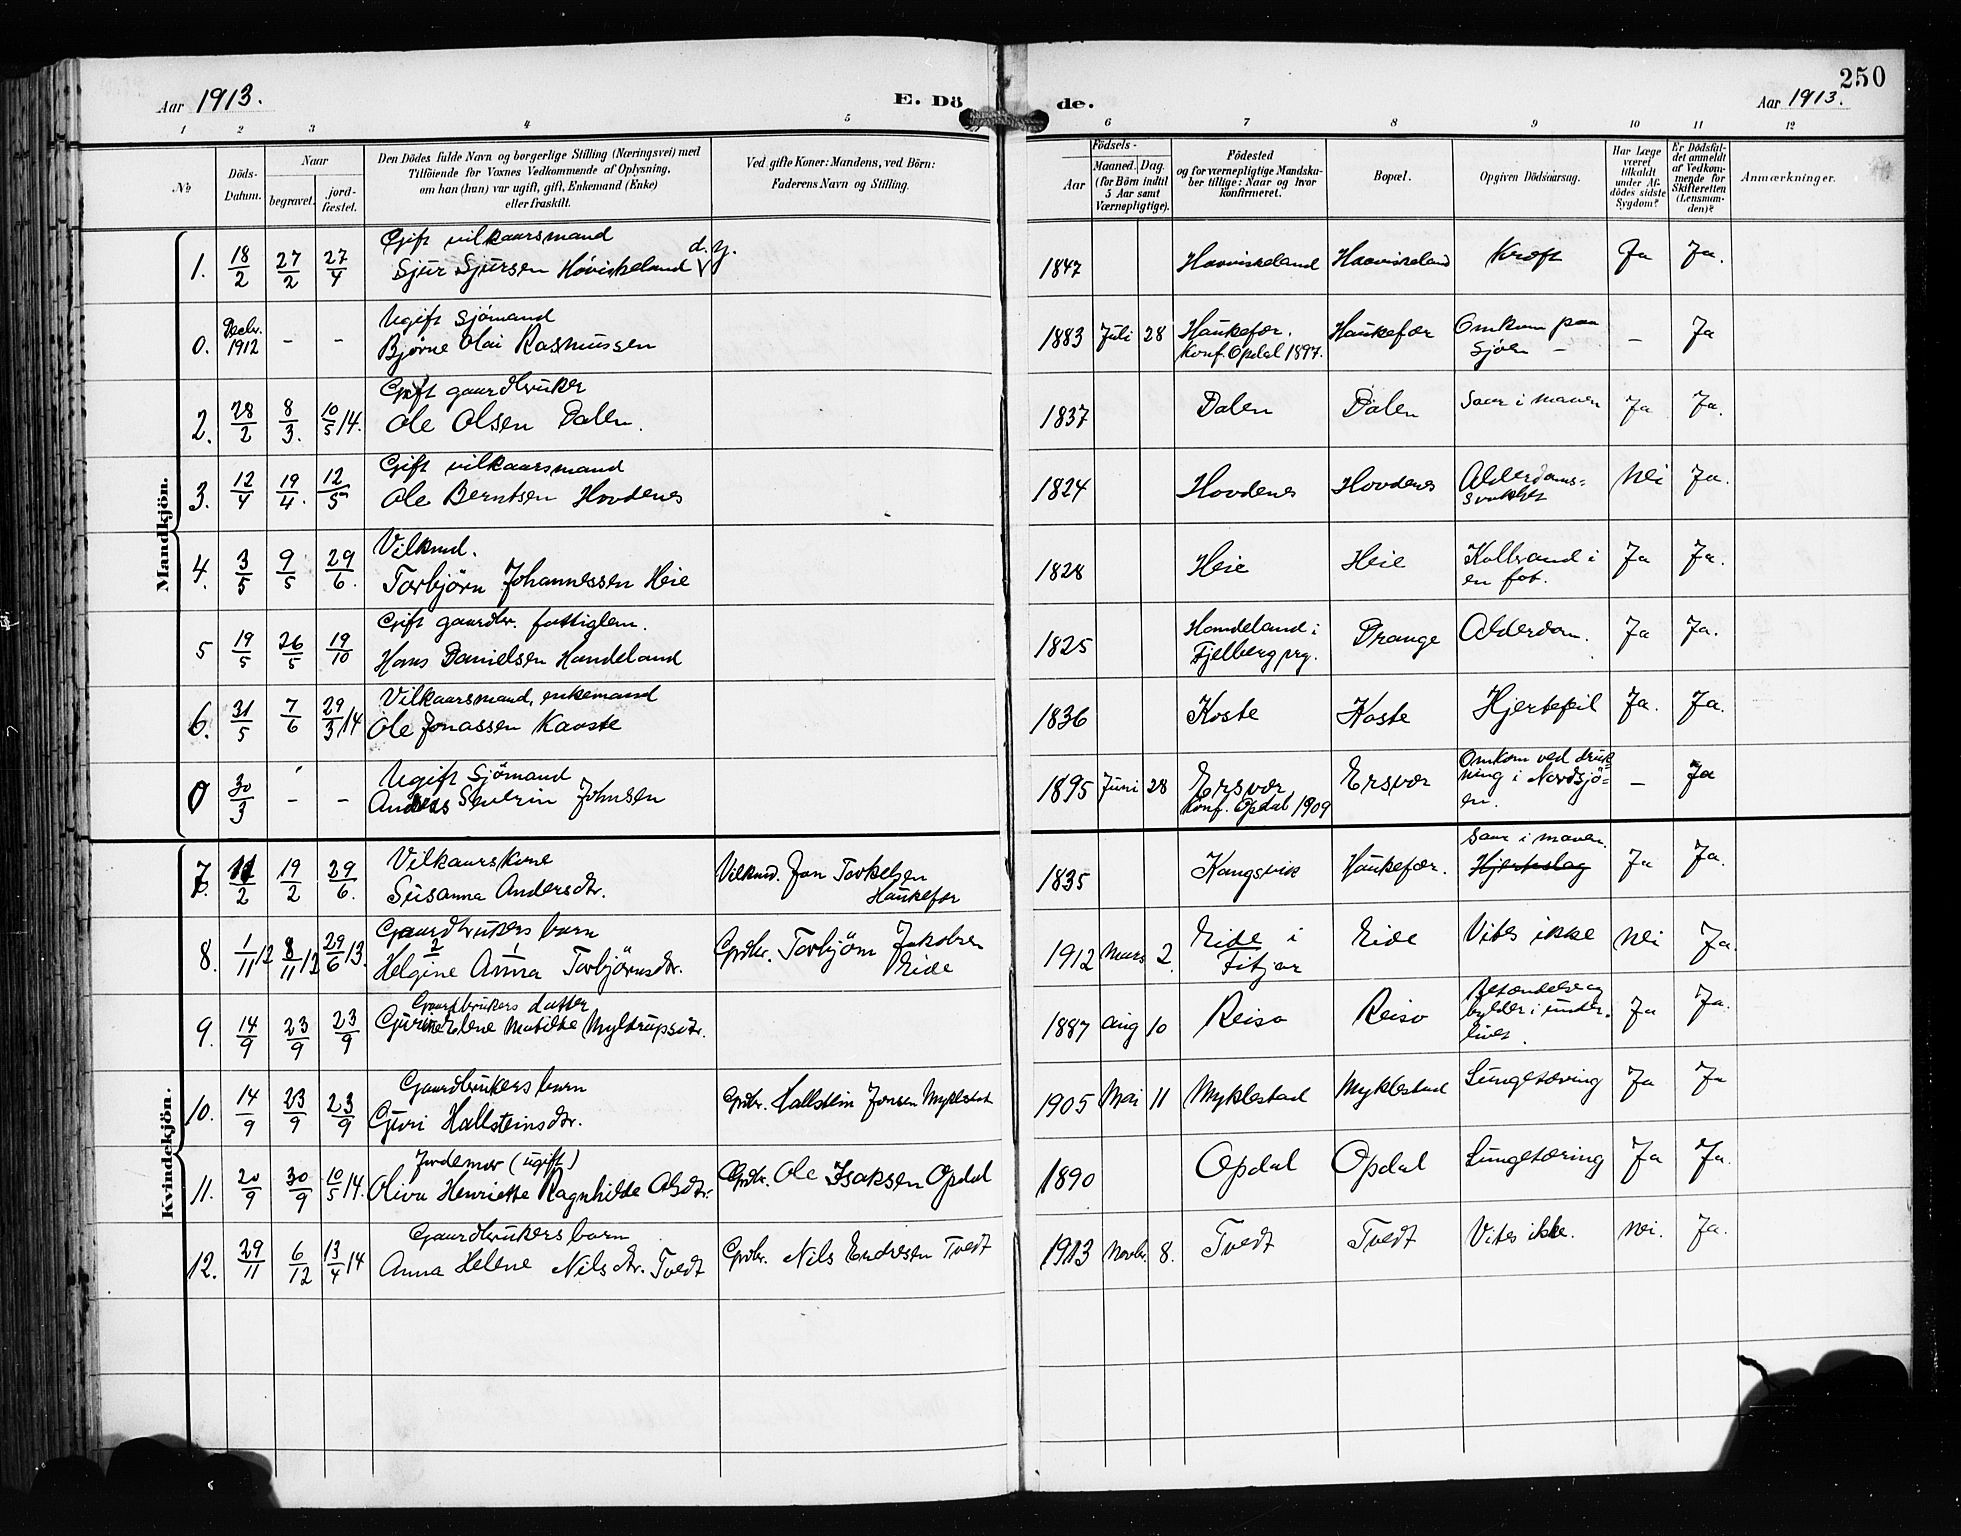 250
Aar 1913. E. Dö de. Aar 1913.
1 2 3 4 5 6 7 8 9 10 11 12
No
Döds-Datum.
Naar
begravet.
jord-fæstet.
Den Dödes fulde Navn og borgerlige Stilling (Næringsvei) med
Tilföiende for Voxnes Vedkommende af Oplysning,
om han (hun) var ugift, gift, Enkemand (Enke)
eller fraskilt.
Ved gifte Koner: Mandens, ved Börn:
Faderens Navn og Stilling.
Aar
Födsels-
Maaned. Dag.
(for Börn indtil
5 Aar samt
Værnepligtige).
Födested
og for værnepligtige Mandska-
ber tillige: Naar og hvor
konfirmeret.
Bopæl.
Opgiven Dödsaarsag.
Har Læge
været
tilkaldt
under Af-
dödes sidste
Sygdom?
Er Dödsfal-
det anmeldt
af Vedkom-
mende for
Skifteretten
(Lensman-
den)?
Anmærkninger.
Mandkjön.
Gift vilkaarsmand
1. 18/2 27/2 27/4 Sjur Sjursen Hoviskeland d. y. 1847 Haaviskeland Haaviskeland Kræft Ja Ja.
Ugift sjömand
0. Decbr. 1912 - - Bjørne Olai Rasmussen 1883 Juli 28 Haukefær. Konf. Opdal 1897. Haukefær Omkom paa Sjöen - - Ja
Gift gaardbruker
2. 28/2 8/3. 10/5 14. Ole Olsen Dalen. 1837 Dalen Dalen Saar i maven Ja Ja.
Gift vilkaarsmand
3. 12/4 19/4. 12/5 Ole Berntsen Hovdenes 1824 Hovdenes Hovdenes Alderdoms= svakhet Nei Ja.
Vilkmd.
4. 3/5 9/5 29/6. Torbjörn Johannessen Heie 1828 Heie Heie Kolbrand i en fot. Ja Ja.
Gift gaardbr. fattiglem.
5 19/5 26/5 19/10 Hans Danielsen Handeland 1825 Handeland i Fjelberg prg. Drange Alderdom. Ja Ja.
Vilkaarsmand, enkemand
6. 31/5 7/6 29/3 14 Ole Jonassen Kaaste 1836 Koste Koste Hjertefeil Ja. Ja.
Ugift Sjömand
0 30/3 - - Anders Severin Johnsen 1895 Juni 28 Ersvær Konf. Opdal 1909 Ersvær Omkom ved druk-
ning i Nordsjö=
en. - Ja
Kvindekjön.
Vilkaarskone
7. 11/2 19/2 29/6. Susanna Andersdtr. Vilkmd. Jon Torkelsen Haukefær 1835 Kangsvik Haukefær. Saar i maven. Hjerteslag Ja Ja.
Gaardbrukers barn
8. 1/11 12 8/11 12 29/6 13. Helgine 2 Anna 1 Torbjörnsdtr. Grdbr. Torbjörn Jakobsen Eide 1912 Mars 2. Eide i Fitjar Eide Vites ikke Nei Ja.
Gaardbrukers datter
9. 14/9 23/9 23/9 Matilde 1887 Aug 10 Reisa Reisa Betændelse og
bylder i under-
livet. Ja Ja.
Gaardbrukers barn
10. 14/9 23/9 23/9 Guri Hallsteinsdtr. Grdbr. Hallstein Jonsen Myklestad 1905 Mai 11 Myklestad Myklestad Lungetæring Ja Ja
Jordemor (ugift)
11. 20/9 30/9 10/5 14. Oliva Henriette Ragnhilde Olsdtr. Grdbr. Ole Isaksen Opdal 1890 Opdal Opdal Lungetæring Ja Ja.
Gaardbrukers barn
12. 29/11 6/12 13/4 14 Anna Helene Nilsdtr. Tvedt Grdbr. Nils Endresen Tvedt 1913 Novbr. 8. Tvedt Tvedt Vites ikke. Nei. Ja.